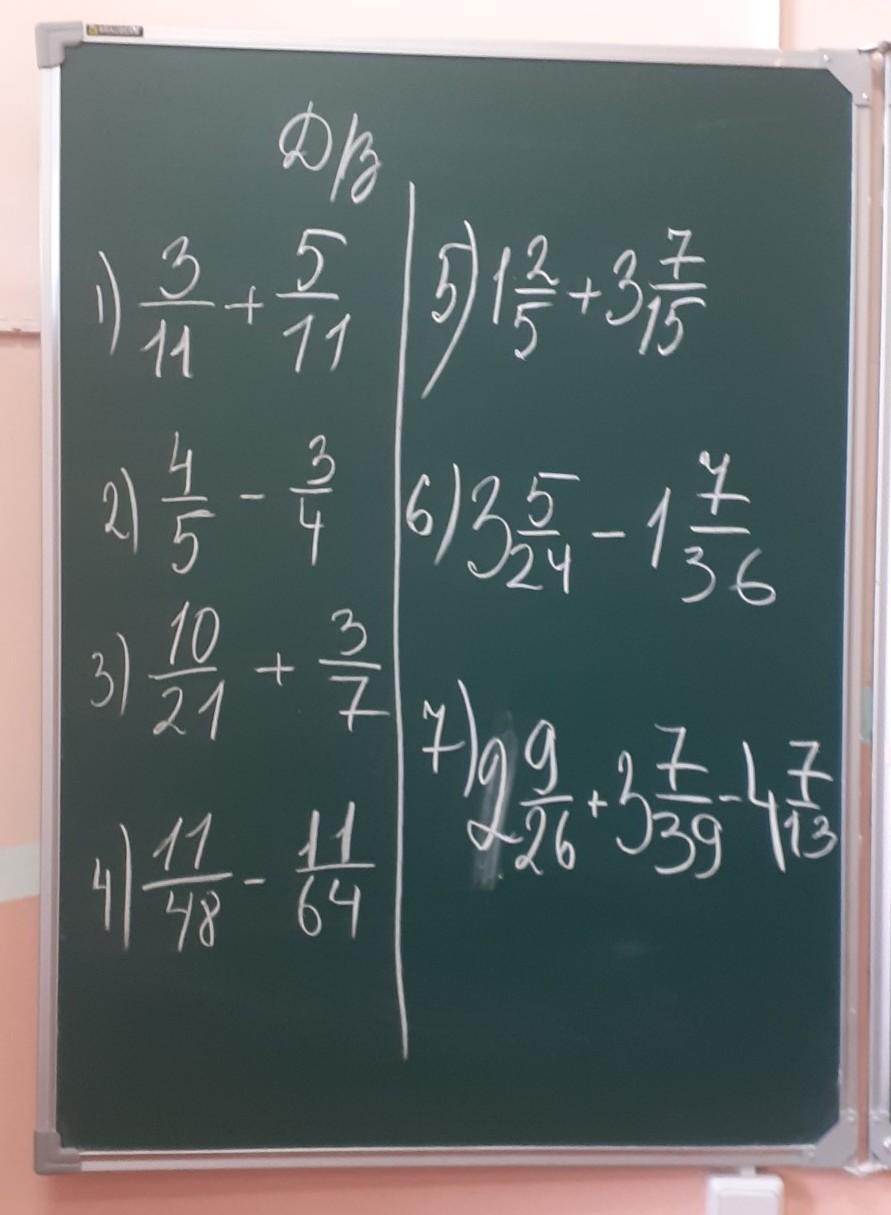 Д/з
1) 3/11 + 5/11
2) 4/5 - 3/4
3) 10/21 + 3/7
4) 11/48 - 11/64
5) 1 2/5 + 3 7/15
6) 3 5/24 - 1 7/36
7) 2 9/26 + 3 7/39 - 4 7/13